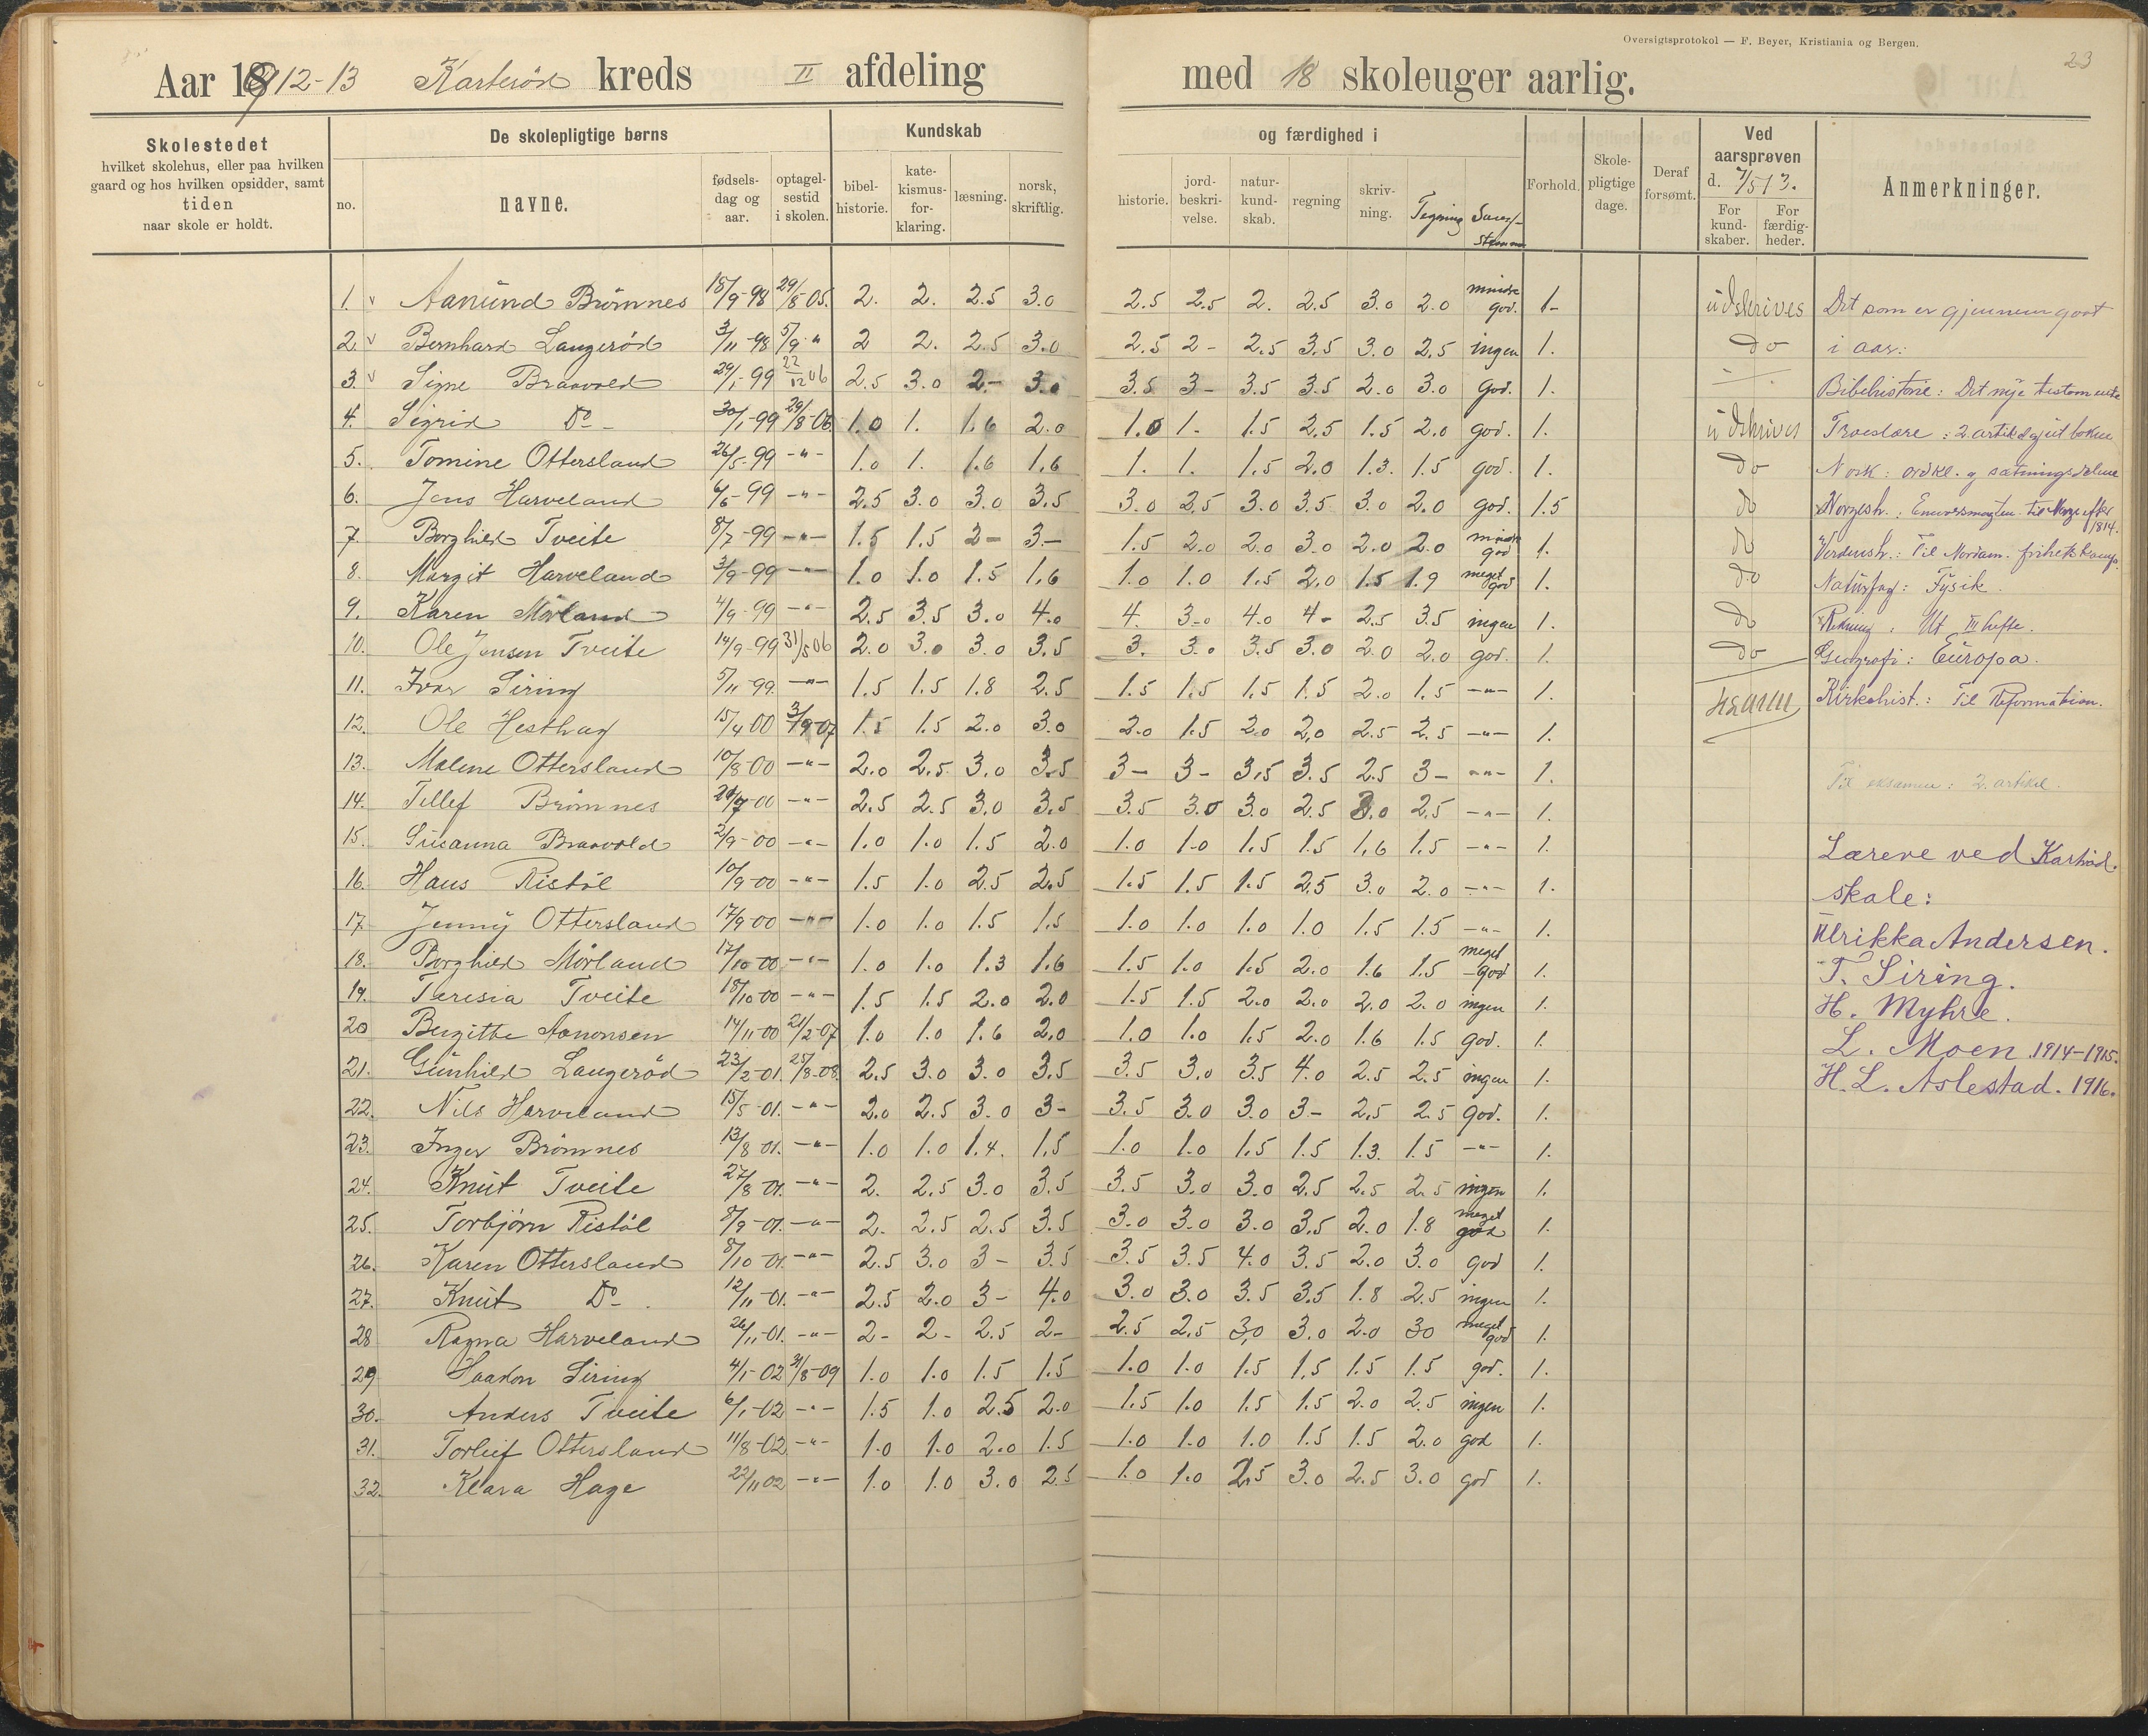 Oversigtsprotokol — F. Beyer, Kristiania og Bergen.
23
Aar 1912-13 Karterød kreds II afdeling med 18 skoleuger aarlig.
Skolestedet hvilket skolehus, eller paa hvilken gaard og hos hvilken opsidder, samt tiden naar skole er holdt.
De skolepligtige børns
no. navne. fødselsdag og aar. optagelsestid i skolen.
Kundskab og færdighed i
bibelhistorie. katekismusforklaring. læsning. norsk, skriftlig. historie. jordbeskrivelse. naturkundskab. regning skrivning. Tegning Sang/stemme
Forhold. Skolepligtige dage. Deraf forsømt.
Ved aarsprøven d. 7/5 13.
For kundskaber. For færdigheder.
Anmerkninger.
1. v Aanund Brømnes 18/9-98 29/8-05. 2. 2. 2.5 3.0 2.5 2.5 2. 2.5 3.0 2.0 mindre god. 1- udskrives
2. v Bernhard Langerød 3/11-98 5/9-"- 2 2. 2.5 3.0 2.5 2- 2.5 3.5 3.0 2.5 ingen 1. do
3. v Signe Braavold 29/1-99 22/12 06 2.5 3.0 2- 3.0 3.5 3- 3.5 3.5 2.0 3.0 god. 1.
4. Sigrid Do- 30/1-99 29/8-06 1.0 1. 1.6 2.0 1.0 1- 1.5 2.5 1.5 2.0 god. 1. udskrives
5. Tomine Ottersland 26/5-99 -"- 1.0 1. 1.6 1.6 1. 1. 1.5 2.0 1.3. 1.5 god. 1. do
6. Jens Harveland 6/6-99 -"- 2.5 3.0 3.0 3.5 3.0 2.5 3.0 3.5 3.0 2.0 god. 1.5 do
7. Borghild Tveite 8/7-99 -"- 1.5 1.5 2- 3.- 1.5 2.0 2.0 3.0 2.0 2.0 mindre god 1. do
8. Margit Harveland 3/9-99 -"- 1.0 1.0 1.5 1.6 1.0 1.0 1.5 2.0 1.5 1.9 meget god 1. do
9. Karen Mørland 4/9-99 -"- 2.5 3.5 3.0 4.0 4. 3.0 4.0 4- 2.5 3.5 ingen 1. do
10. Ole Jensen Tveite 14/9-99 31/5 06 2.0 3.0 3.0 3.5 3. 3.0 3.5 3.0 2.0 2.0 god. 1. do
11. Ivar Siring 5/11-99. -"- 1.5 1.5 1.8 2.5 1.5 1.5 1.5 1.5 2.0 1.5 -"- 1.
12. Ole Hesthag 15/4 00 3/9-07 1.5 1.5 2.0 3.0 2.0 1.5 2.0 2.0 2.5 2.5 -"- 1.
13. Malene Ottersland 10/8-00 -"- 2.0 2.5 3.0 3.5 3- 3- 3.5 3.5 2.5 3- -"- 1.
14. Tellef Brømnes 28/7-00 -"- 2.5 2.5 3.0 3.5 3.5 3.0 3.0 2.5 3.0 2.5 -"- 1.
15. Susanna Braavold 2/9-00 -"- 1.0 1.0 1.5 2.0 1.0 1.0 1.5 1.5 1.6 1.5 -"- 1.
16. Hans Ristøl 10/9-00 -"- 1.5 1.0 2.5 2.5 1.5 1.5 1.5 2.5 3.0 2.0 -"- 1.
17. Jenny Ottersland 17/9-00 -"- 1.0 1.0 1.5 1.5 1.0 1.0 1.0 1.0 1.5 1.5 -"- 1.
18. Borghild Mørland 17/10-00 -"- 1.0 1.0 1.3 1.6 1.5 1.0 1.5 2.0 1.6 1.5 meget god 1.
19. Teresia Tveite 18/10-00 -"- 1.5 1.5 2.0 2.0 1.5 1.5 2.0 2.0 2.0 2.0 ingen 1.
20 Bergitte Aanonsen 14/11-00 21/2-07 1.0 1.0 1.6 2.0 1.0 1.0 1.5 2.0 1.6 1.5 god. 1.
21. Gunhild Langerød 23/2-01. 25/8-08. 2.5 3.0 3.0 3.5 3.5 3.0 3.5 4.0 2.5 2.5 ingen 1.
22. Nils Harveland 15/5-01. -"- 2.0 2.5 3.0 3- 3.5 3.0 3.0 3- 2.5 2.5 god. 1.
23. Inger Brømnes 13/8 01. -"- 1.0 1.0 1.4. 1.5 1.0 1.0 1.5 1.5 1.3. 1.5 -"- 1.
24. Knut Tveite 27/8-01. -"- 2. 2.5 3.0 3.5 3.5 3.0 3.0 2.5 2.5 2.5 ingen 1.
25. Torbjørn Ristøl 8/9-01. -"- 2. 2.5 2.5 3.5 3.0 3.0 3.0 3.5 2.0 1.8 meget god 1.
26. Karen Ottersland 8/10-01. -"- 2.5 3.0 3- 3.5 3.5 3.5 4.0 3.5 2.0 3.0 god 1.
27. Knut Do- 12/11-01. -"- 2.5 2.0 3- 4.0 3.0 3.0 3.5 3.5 1.8 2.5 ingen 1.
28 Ragna Harveland 26/11-01. -"- 2- 2- 2.5 2- 2.5 2.5 3.0 3.0 2.0 30 meget god 1.
29 Haakon Siring 4/1-02 31/8-09 1.0 1.0 1.5 1.5 1.0 1.0 1.5 1.5 1.5 1.5 god. 1.
30. Anders Tveite 6/1-02 -"- 1.5 1.0 2.5 2.0 1.5 1.0 1.5 1.5 2.0 2.5 ingen 1.
31. Torleif Ottersland 11/8-02 -"- 1.0 1.0 2.0 1.5 1.0 1.0 1.0 1.5 1.5 2.0 god 1.
32. Klara Hage 22/11 02 -"- 1.0 1.0 3.0 2.5 1.0 1.0 2.5 3.0 2.5 3.0 god 1.
Det som er gjennemgaat
i aar:
Bibelhistorie: Det nye testamente
Troeslære: 2. artikel
Norsk: ordkl. og sætningsdelene
Norgesh.: Enevoldsmagten til Norge efter 1814.
Verdensh.: Til Nordam. frihetskamp.
Naturfag: Fysik.
Rekning: Ut III hefte.
Geografi: Europa.
Kirkehist.: Til Reformation.
Til eksamen: 2. artikel.
Lærere ved Karterød
skole:
Ulrikka Andersen.
T. Siring.
H. Myhre.
L. Moen 1914-1915.
H. L. Aslestad. 1916.